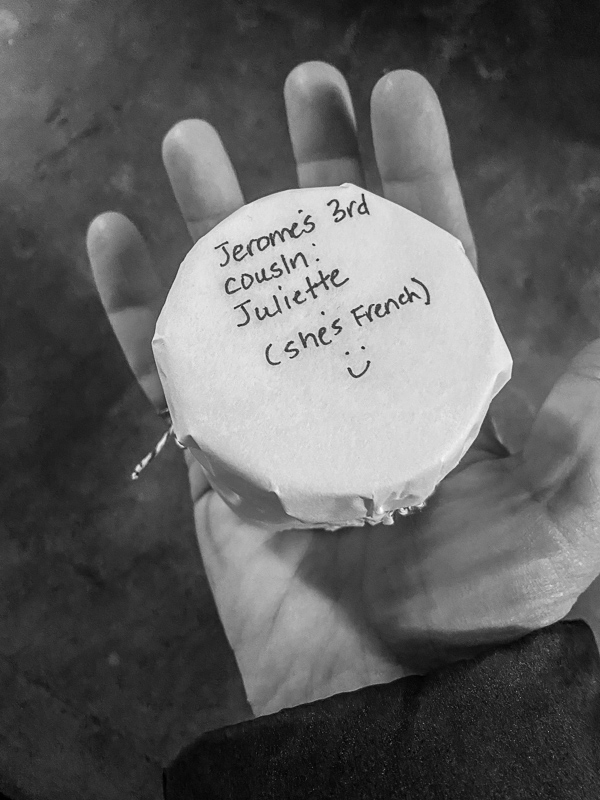 Jerome's 3rd
cousin:
Juliette
(she's French)
:)